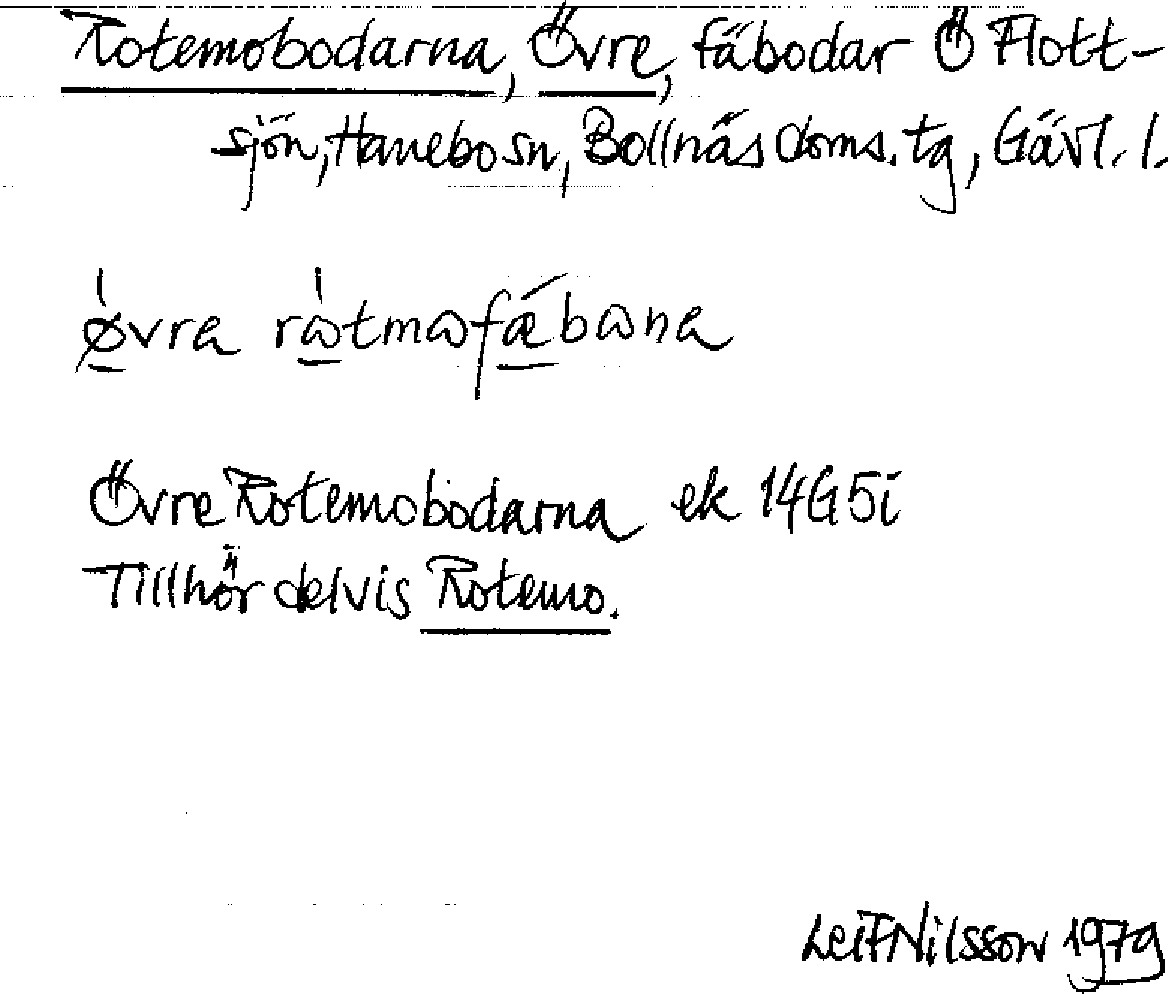 Rotemobodarna, Övre, fäbodar Ö Flott-
sjön, Hanebo sn, Bollnäs doms. tg, Gävl. l.
ø̀vra ròtmofǽbona
Övre Rotemobodarna ek 14G5i
Tillhör delvis Rotemo.
Leif Nilsson 1979